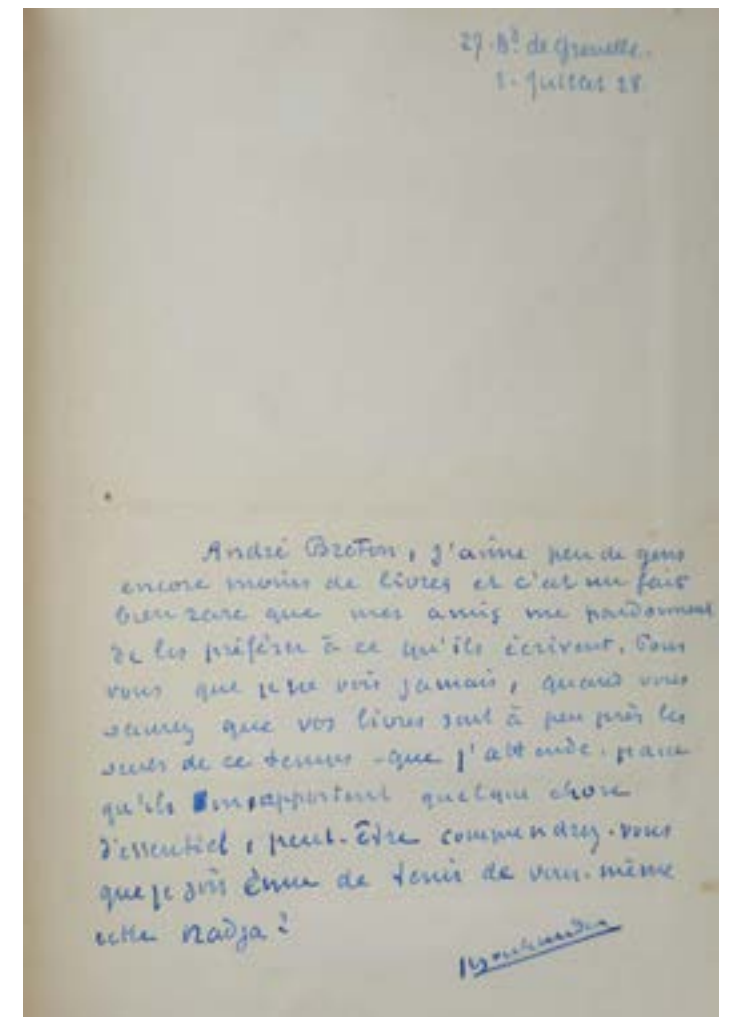 27. Bd de Grenelle.
2. Juillet 28
André Breton, j'aime peu de gens
encore moins de livres et c'est un fait
bien rare que mes amis me pardonnent
de les préférer à ce qu'ils écrivent. Pour
vous que je ne vois jamais, quand vous
saurez que vos livres sont à peu près les
seuls de ce temps - que j'attende, parce
qu'ils m'apportent quelque chose
d'essentiel, peut-être comprendrez-vous
que je sois émue de tenir de vous-même
cette Nadja?